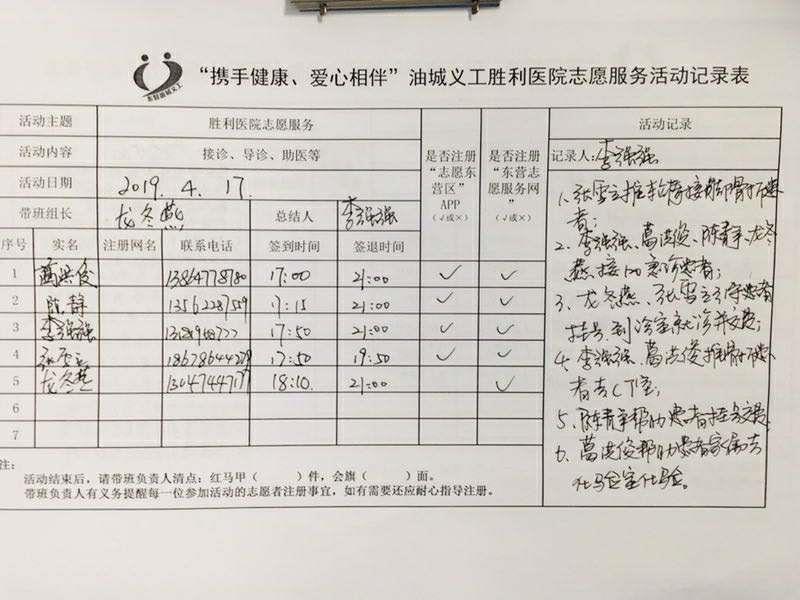 “携手健康、爱心相伴”油城义工胜利医院志愿服务活动记录表
东营油城义工
活动主题 胜利医院志愿服务
活动内容 接诊、导诊、助医等
活动日期 2019.4.17.
带班组长 龙冬燕 总结人 李强强
是否注册“志愿东营区”APP（√或×）
是否注册“东营志愿服务网”（√或×）
序号 实名 注册网名 联系电话 签到时间 签退时间
1 葛洪俊 13864778780 17:00 21:00 ✓ ✓
2 陈静 13562287559 17:15 21:00 ✓ ✓
3 李强强 17:50 21:00 ✓ ✓
4 张雪云 18678644279 17:50 19:50 ✓ ✓
5 龙冬燕 18:10. 21:00 ✓
6
7
注：
活动结束后，请带班负责人清点：红马甲（ ）件，会旗（ ）面。
带班负责人有义务提醒每一位参加活动的志愿者注册事宜，如有需要还应耐心指导注册。
活动记录
记录人：李强强
1、张雪云推轮椅接脚骨折患
者；
2、李强强、葛洪俊、陈静、龙冬
燕接120急诊患者；
3、龙冬燕、张雪云引导患者
挂号、到诊室就诊并交费；
4、李强强、葛洪俊推骨折患
者去CT室；
5、陈静帮助患者挂号交费
6、葛洪俊帮助患者家属去
化验室化验。